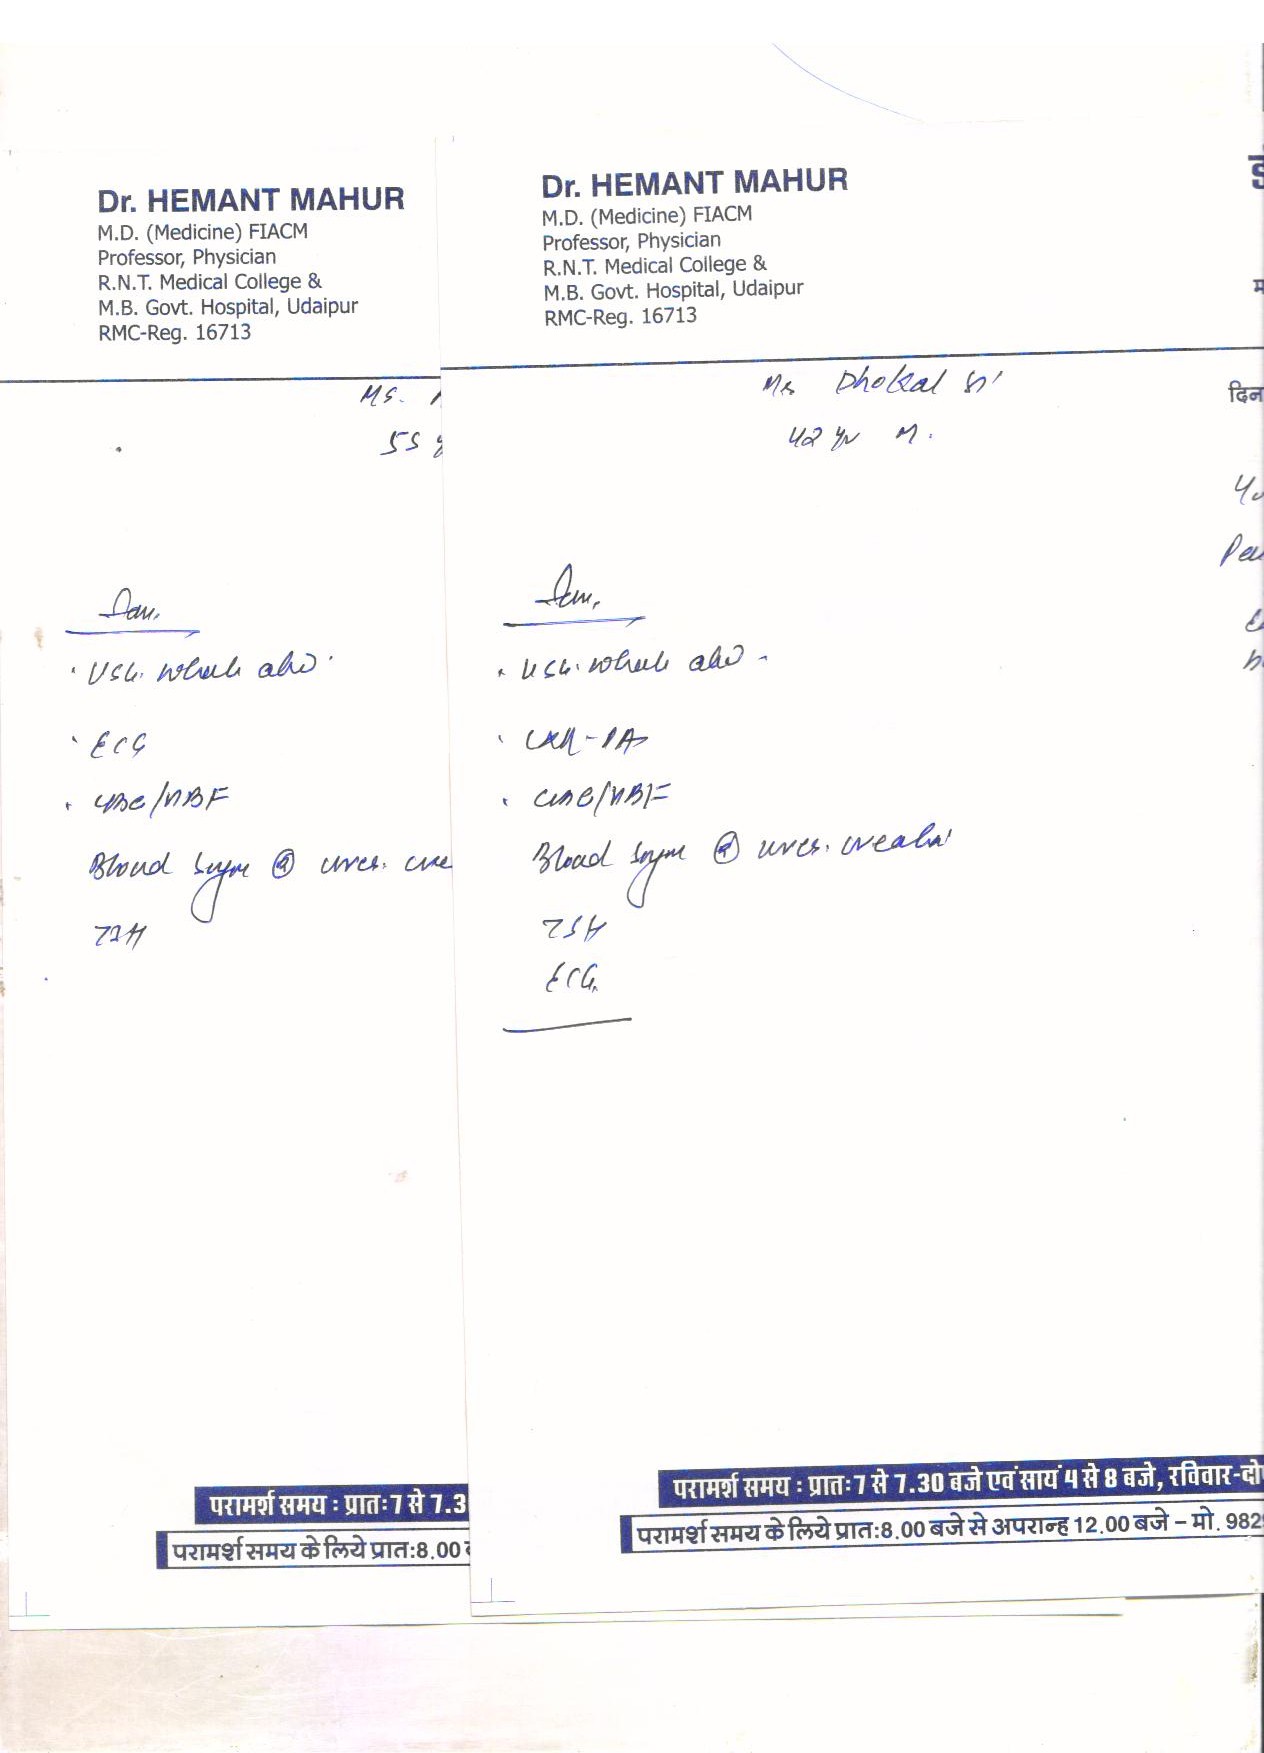 Dr. HEMANT MAHUR
M.D. (Medicine) FIACM
Professor, Physician
R.N.T. Medical College &
M.B. Govt. Hospital, Udaipur
RMC-Reg. 16713
Ms.
55 y
USG. whole abd.
ECG
CBC/PBF
Blood Sugar R urea. cre
TSH
परामर्श समय : प्रातः7 से 7.3
परामर्श समय के लिये प्रातः8.00
Dr. HEMANT MAHUR
M.D. (Medicine) FIACM
Professor, Physician
R.N.T. Medical College &
M.B. Govt. Hospital, Udaipur
RMC-Reg. 16713
Mr Dhokal
दिन
42 yr M.
USG. whole abd -
CXR-PA
CBC/PBF
Blood Sugar R urea.
TSH
ECG.
परामर्श समय : प्रातः7 से 7.30 बजे एवं सायं 4 से 8 बजे, रविवार-दो
परामर्श समय के लिये प्रातः8.00 बजे से अपरान्ह 12.00 बजे – मो. 982